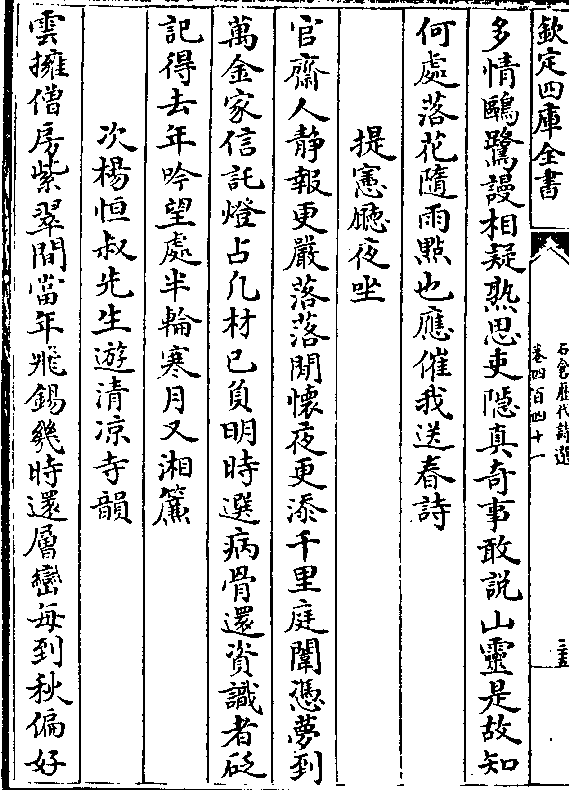 欽定四庫全書
石倉歷代詩選
卷四百四十一
三五
多情鷗鷺謾相疑熟思吏隱真奇事敢說山靈是故知
何處落花隨雨點也應催我送春詩
提憲廳夜坐
官齋人静報更嚴落落閒懷夜更添千里庭闈憑夢到
萬金家信託燈占凡材已負明時選病骨還資識者砭
記得去年吟望處半輪寒月又湘簾
次楊恒叔先生遊清凉寺韻
雲擁僧房紫翠間當年飛錫幾時還層巒每到秋偏好